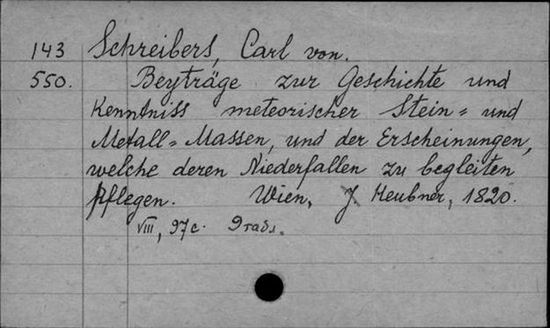 143 Schreibers, Carl von.
550. Beyträge zur Geschichte und
Kenntniss meteorischer Stein= und
Metall=Massen, und der Erscheinungen,
welche deren Niederfallen zu begleiten
pflegen. Wien, J. Heubner, 1820.
VIII, 97c.